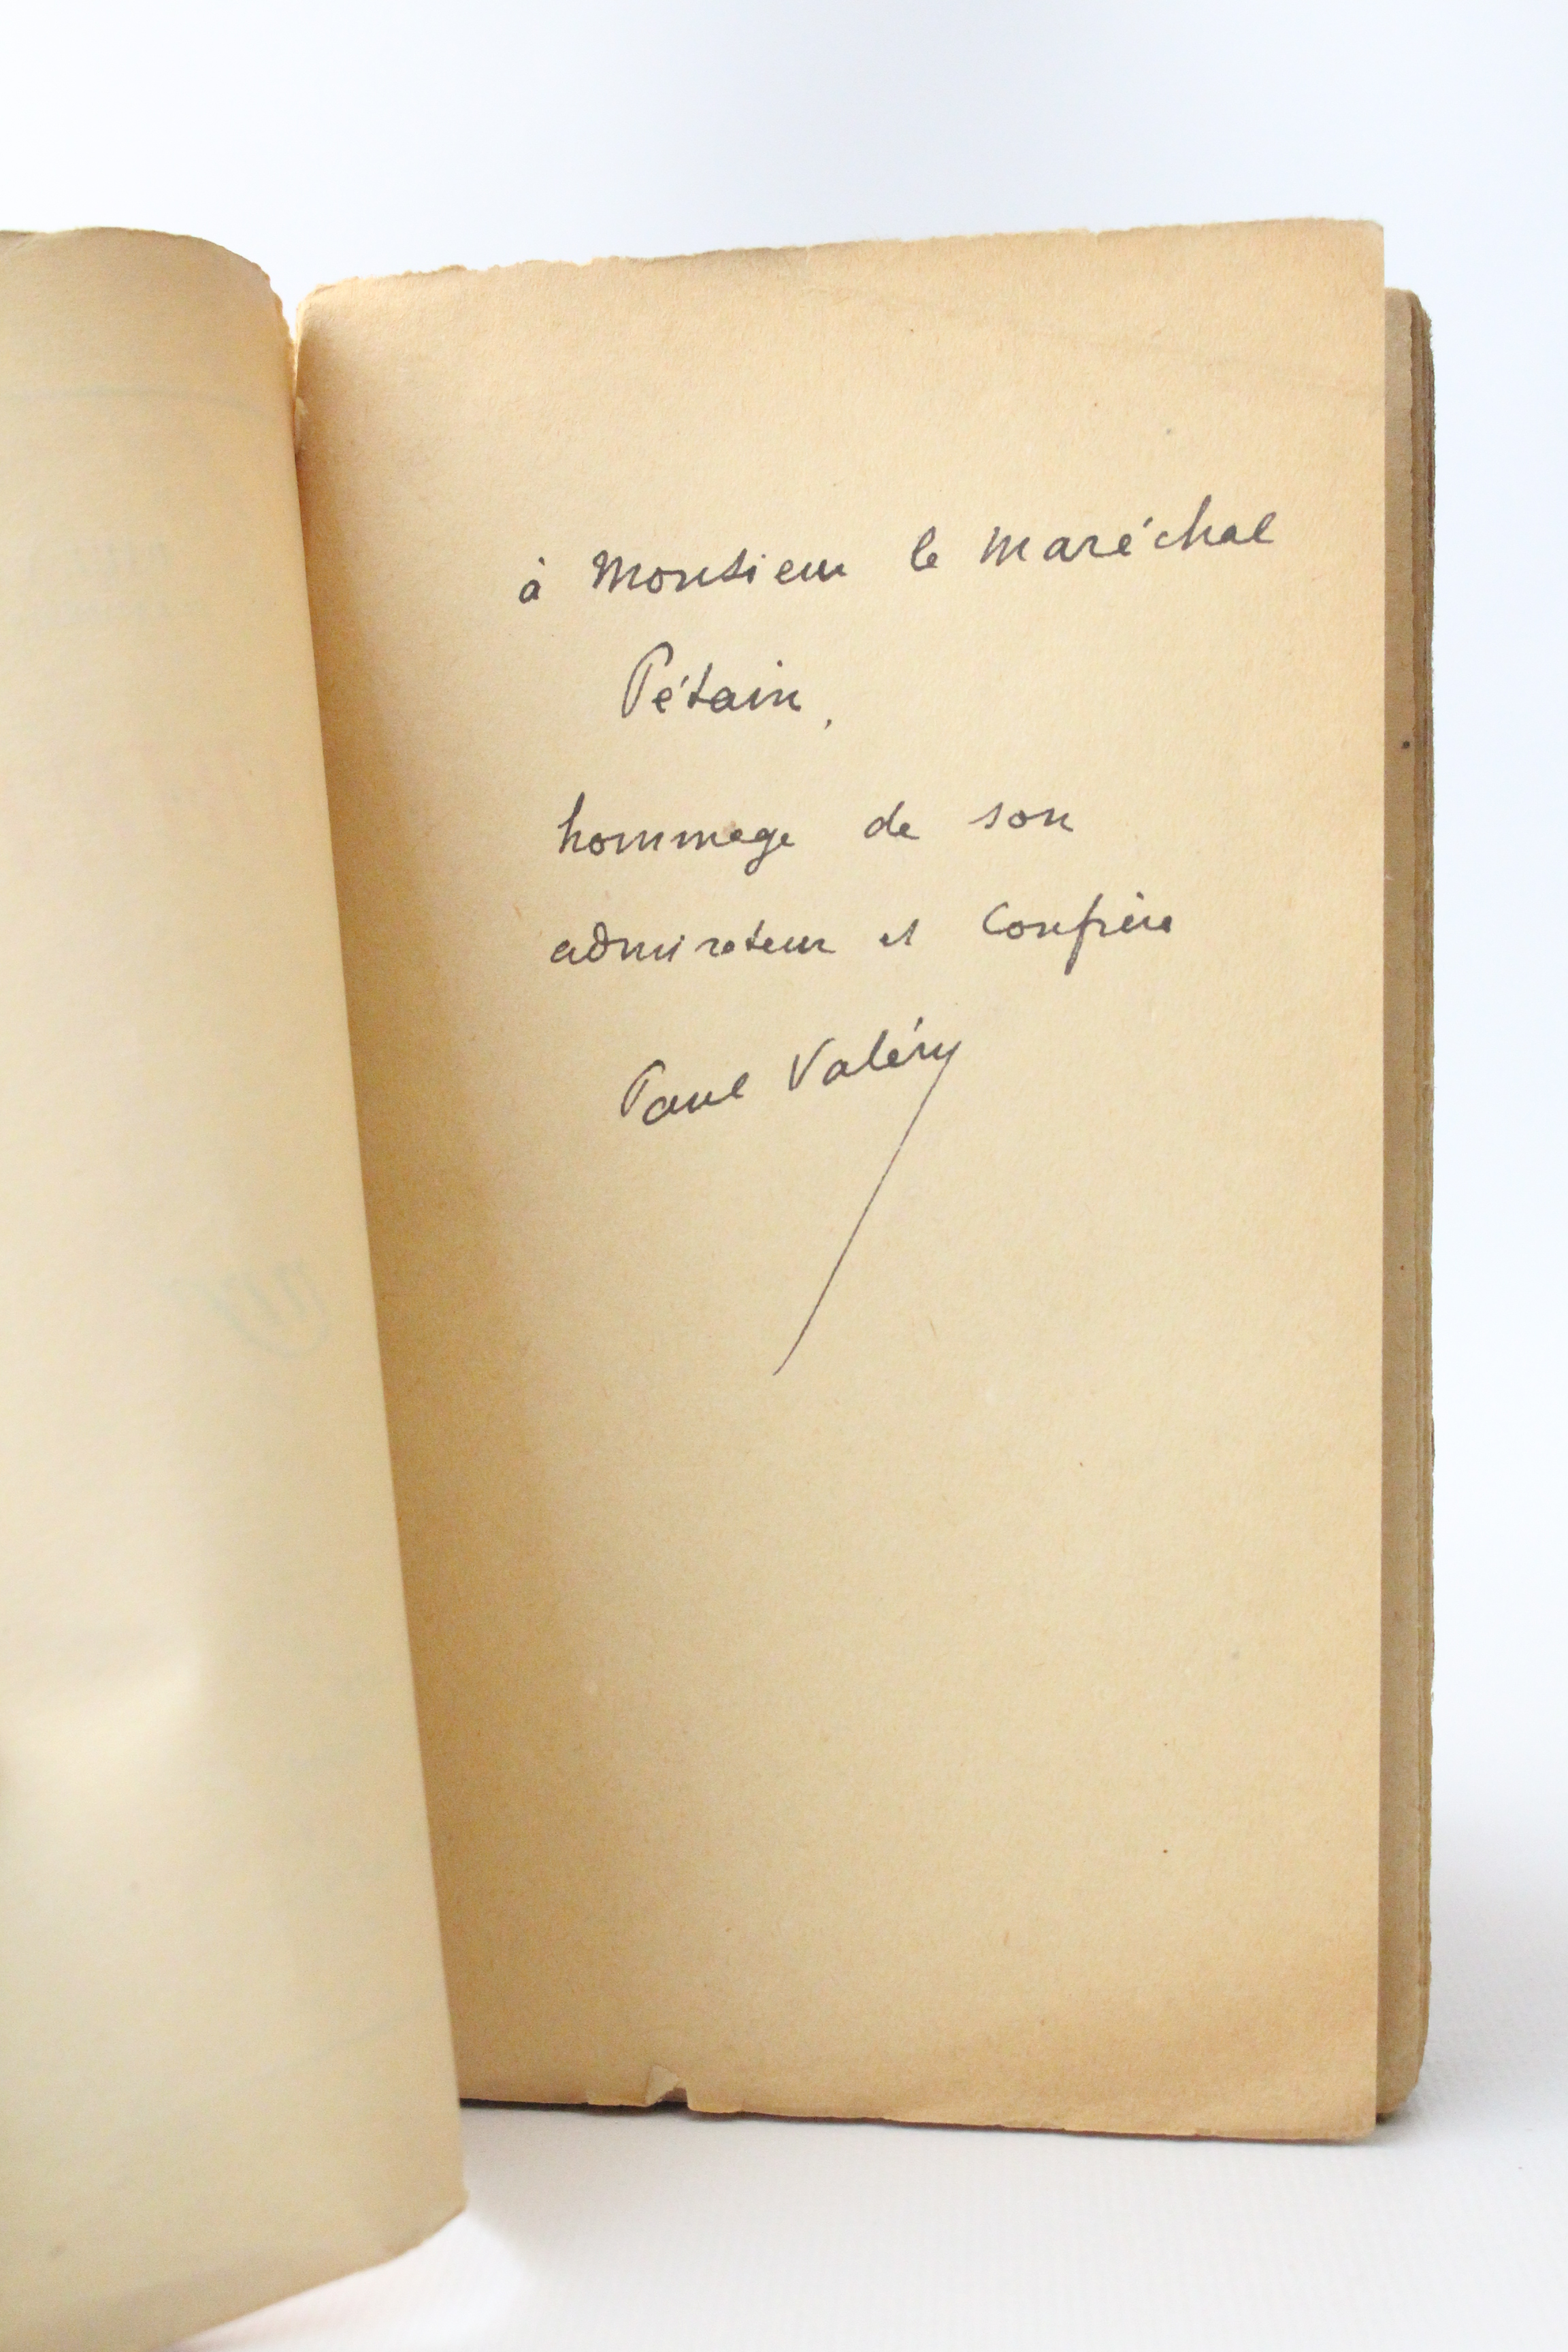 à Monsieur le Maréchal
Pétain,
hommage de son
admirateur et Confrère
Paul Valéry
nrf